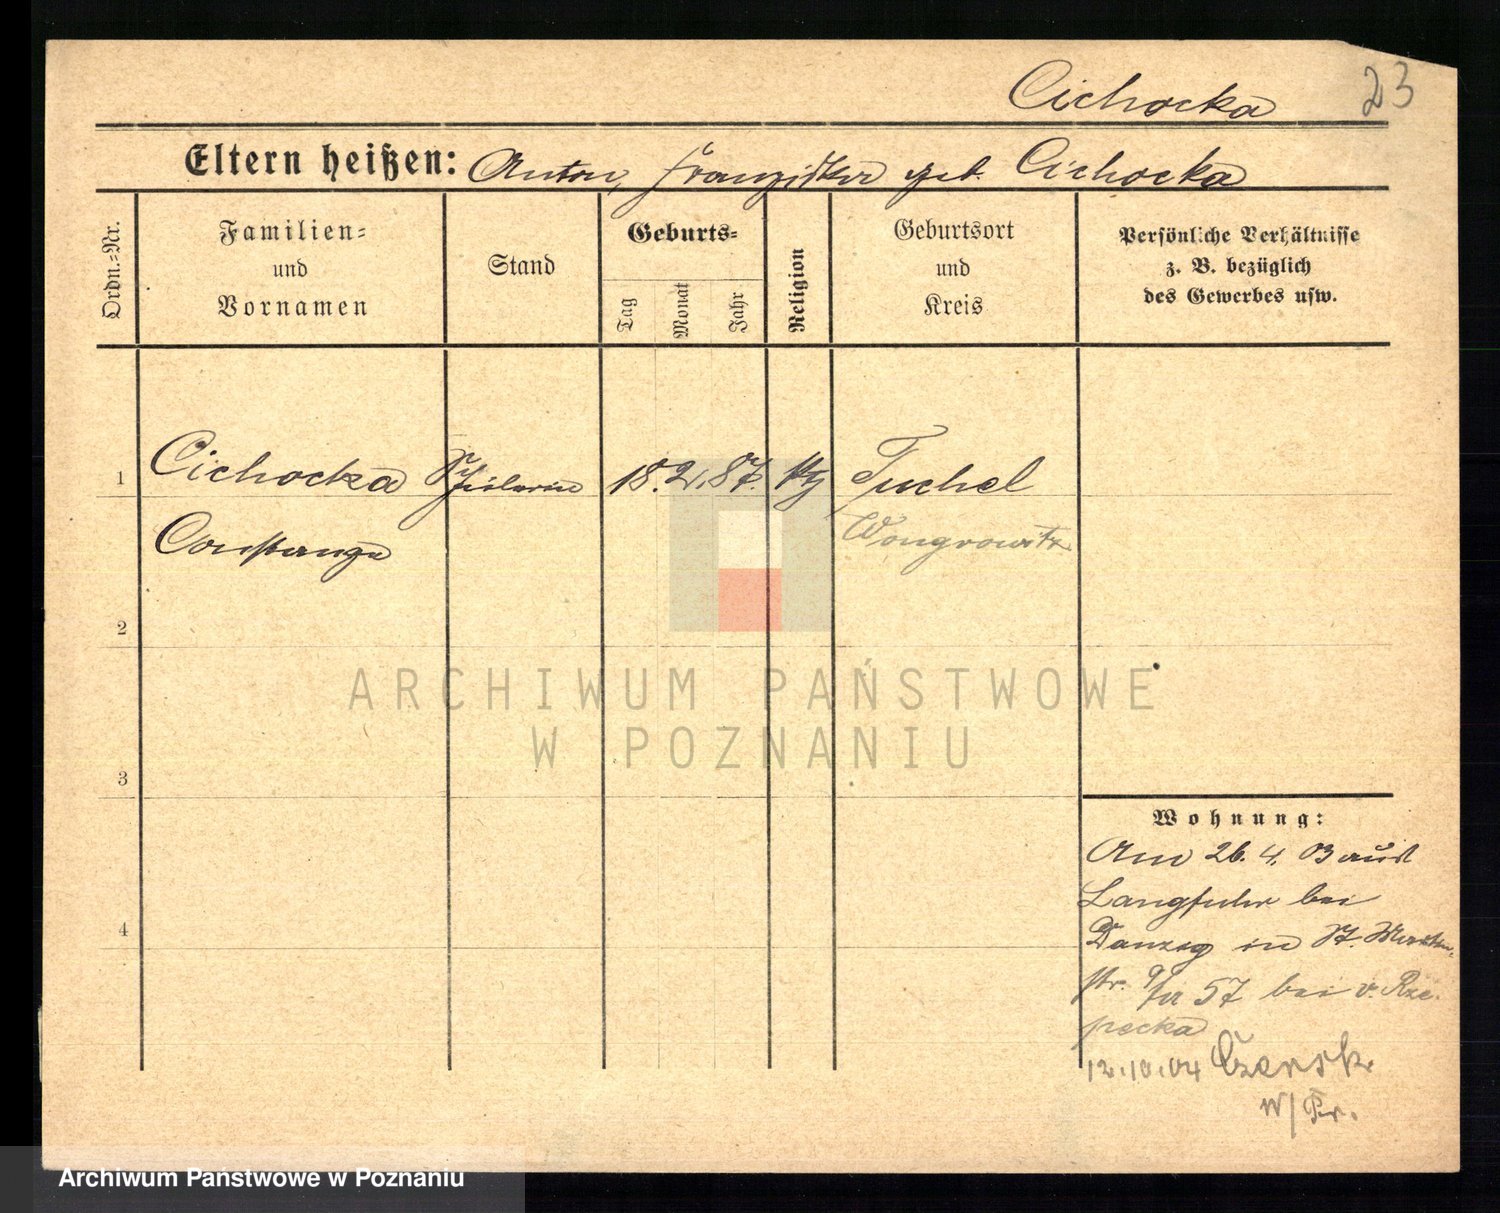 Cichocka 23
Eltern heißen: Anton, Franziska geb. Cichocka
Ordn.=Nr.
Familien=
und
Vornamen
Stand
Geburts=
Tag
Monat
Jahr
Religion
Geburtsort
und
Kreis
Persönliche Verhältnisse
z. B. bezüglich
des Gewerbes usw.
1 Cichocka Schülerin 18. 2. 87. Tuchel
Constanze Wongrowitz
2
3
4
Wohnung:
Am 26. 4. 03 aus
Langfuhr bei
Danzig in St. Martin
str. 57 bei v. Rze
pecka
12.10.04 Czersk
W/Pr.
ARCHIWUM PAŃSTWOWE
W POZNANIU
Archiwum Państwowe w Poznaniu